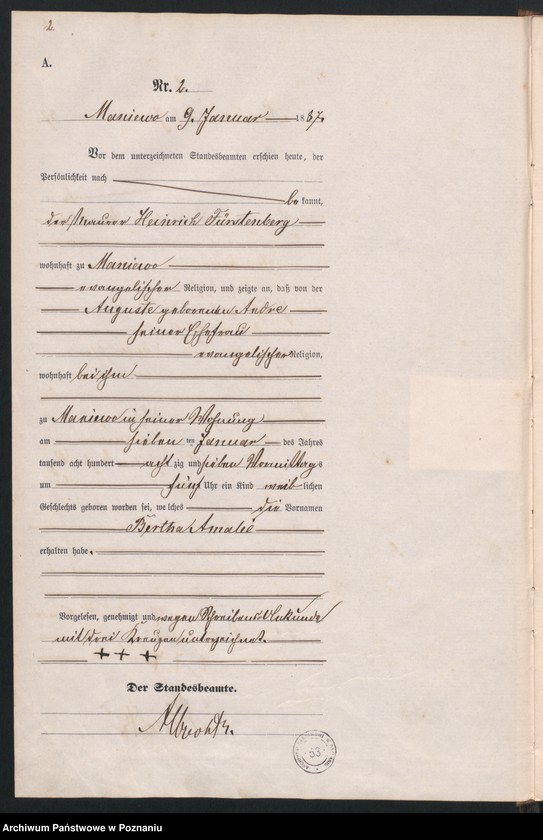 2.
A.
Nr. 2.
Maniewo am 9. Januar 1887.
Vor dem unterzeichneten Standesbeamten erschien heute, der
Persönlichkeit nach
be kannt,
der Maurer Heinrich Fürstenberg
wohnhaft zu Maniewo
evangelischer Religion, und zeigte an, daß von der
Auguste geborenen Andre
seiner Ehefrau
evangelischer Religion,
wohnhaft bei ihm
zu Maniewo in seiner Wohnung
am sieben ten Januar des Jahres
tausend acht hundert acht zig und sieben Vormittags
um fünf Uhr ein Kind weib lichen
Geschlechts geboren worden sei, welches die Vornamen
Bertha Amalie
erhalten habe.
Vorgelesen, genehmigt und wegen Schreibens Unkunde
mit drei Kreuzen unterzeichnet.
+ + +
Der Standesbeamte.
Albrecht.
53
Archiwum Państwowe w Poznaniu